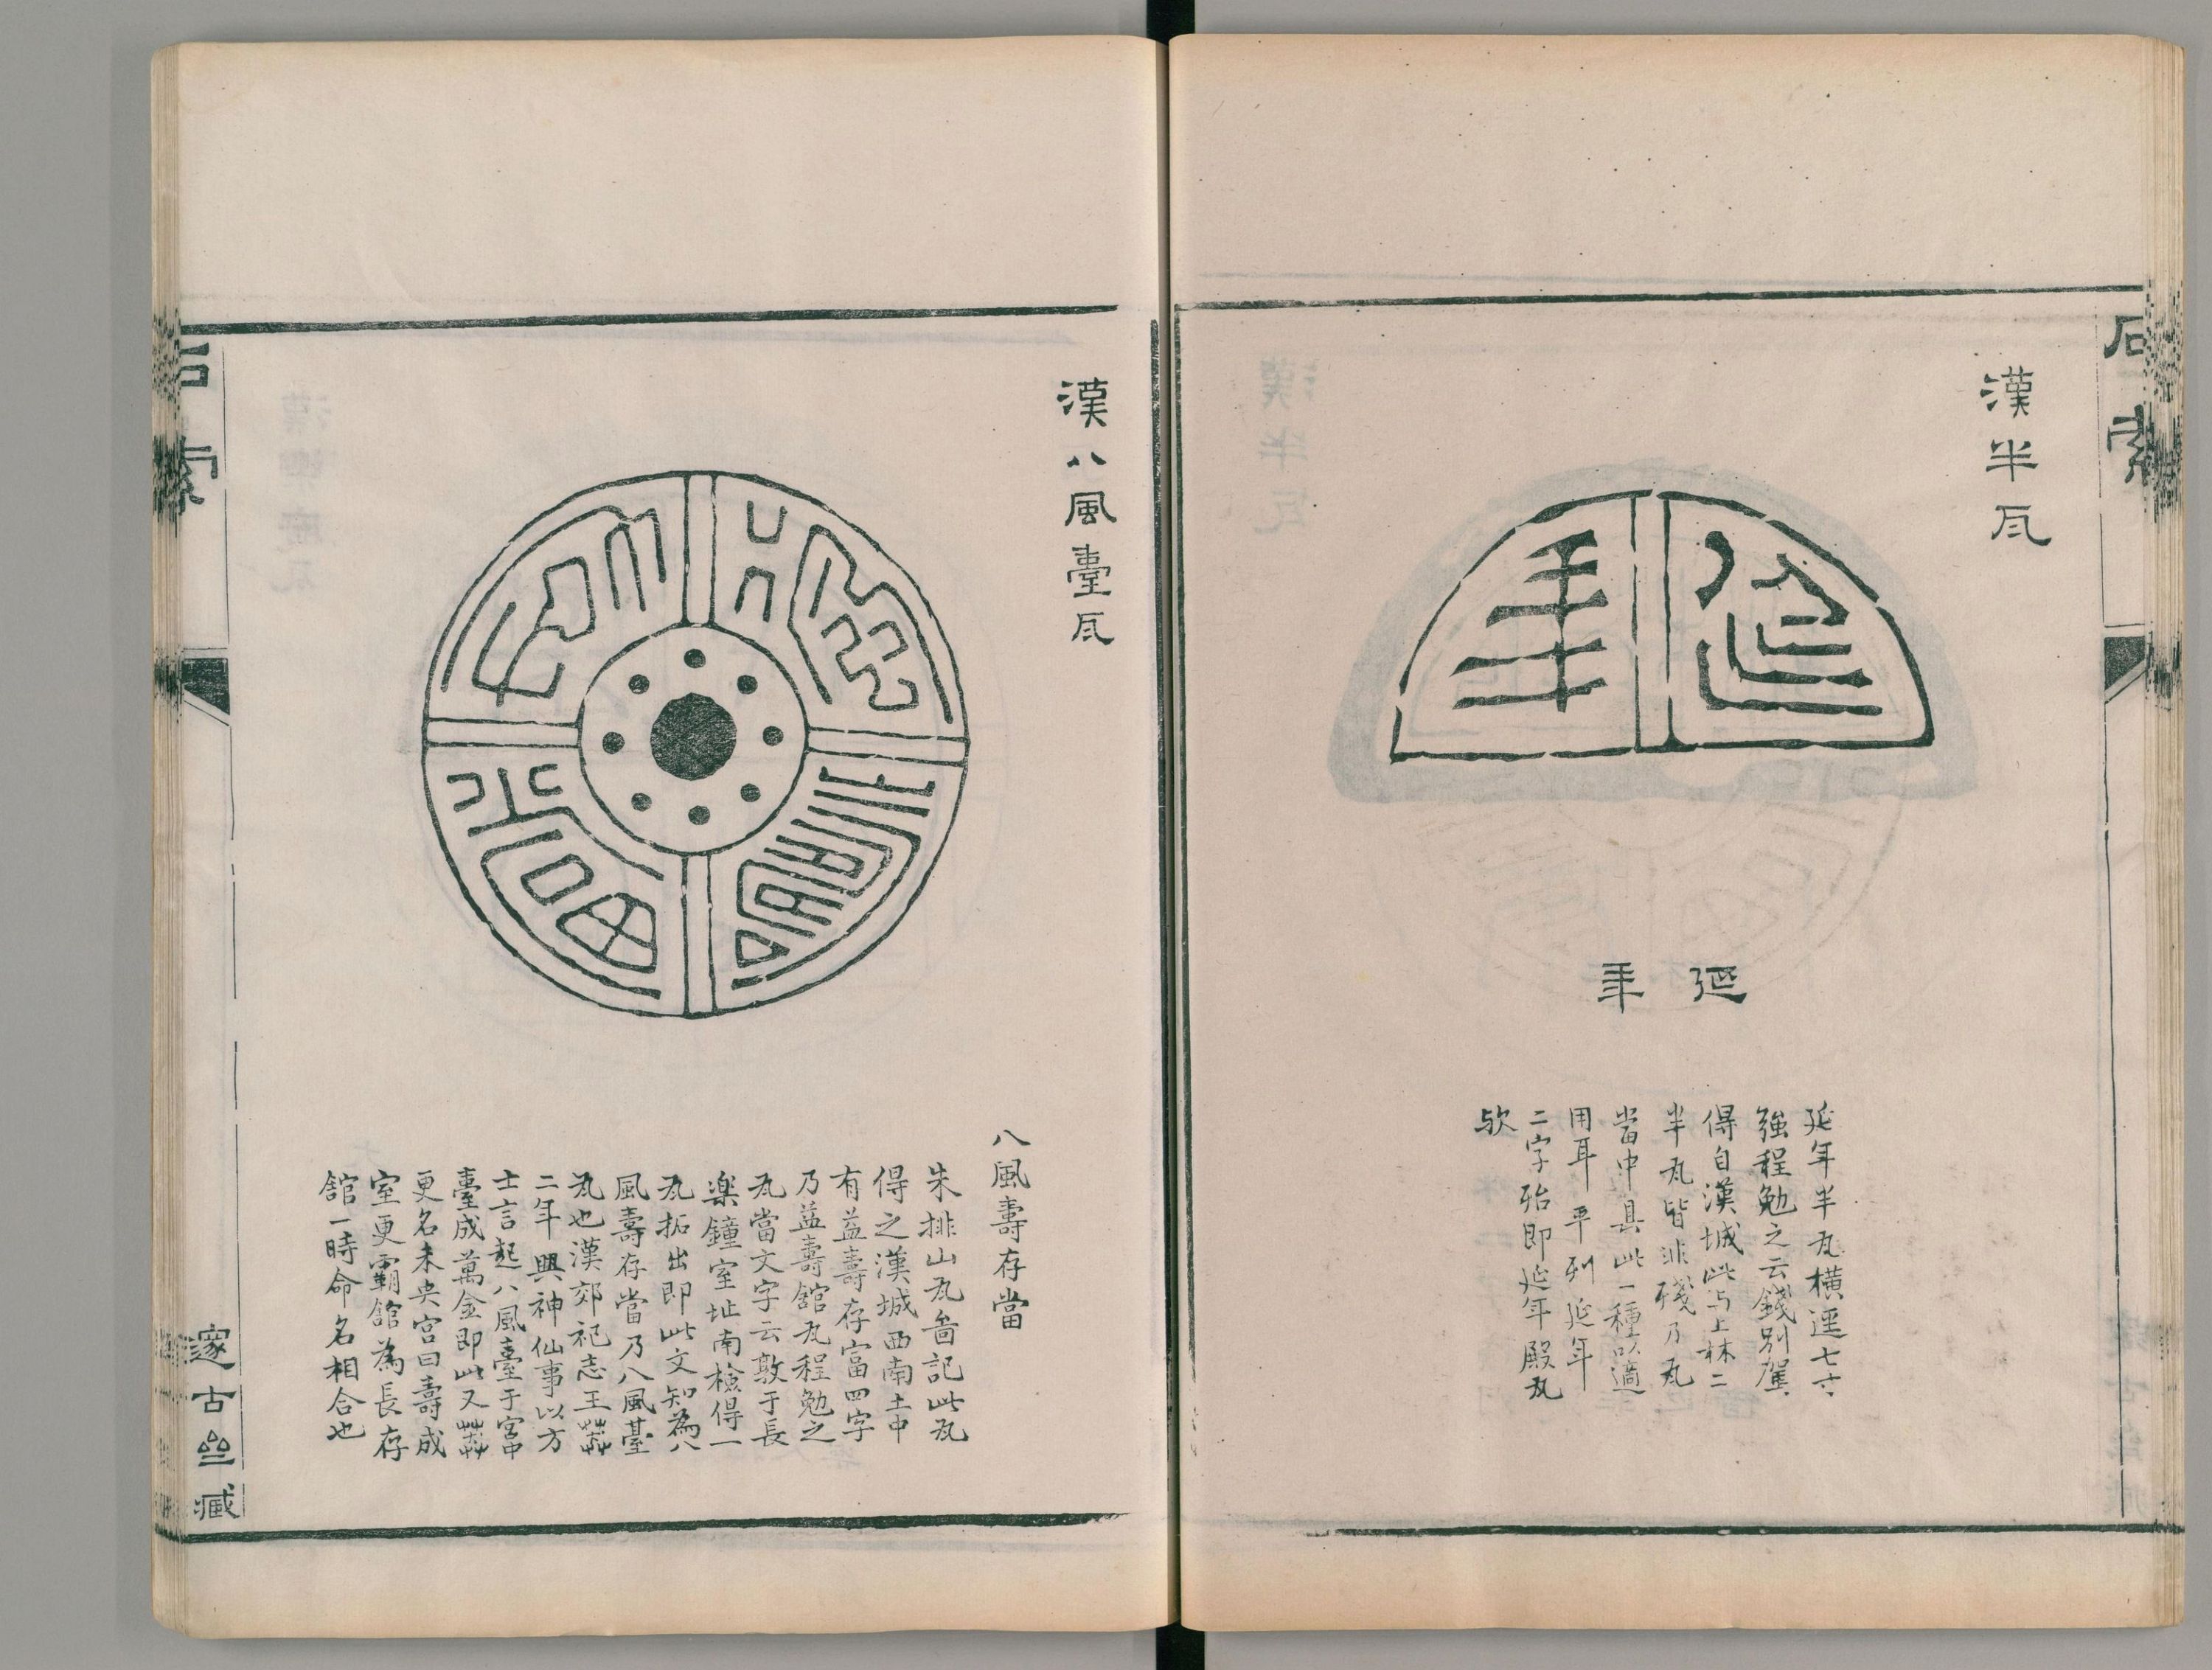 石索
漢半瓦
延年
延年半瓦橫逕七寸
強程勉之云錢別駕
得自漢城此与上林二
半瓦皆非殘乃瓦
當中具此一種以適
用耳平列延年
二字殆即延年殿瓦
歟
漢八風臺瓦
八風壽存當
朱排山瓦啚記此瓦
得之漢城西南土中
有益壽存富四字
乃益壽館瓦程勉之
瓦當文字云敦于長
楽鐘室址南檢得一
瓦拓出即此文知為八
風壽存當乃八風臺
瓦也漢郊祀志王莽
二年興神仙事以方
士言起八風臺于宮中
臺成萬金即此又莽
更名未央宮曰壽成
室更霸館為長存
館一時命名相合也
石索
邃古齋藏